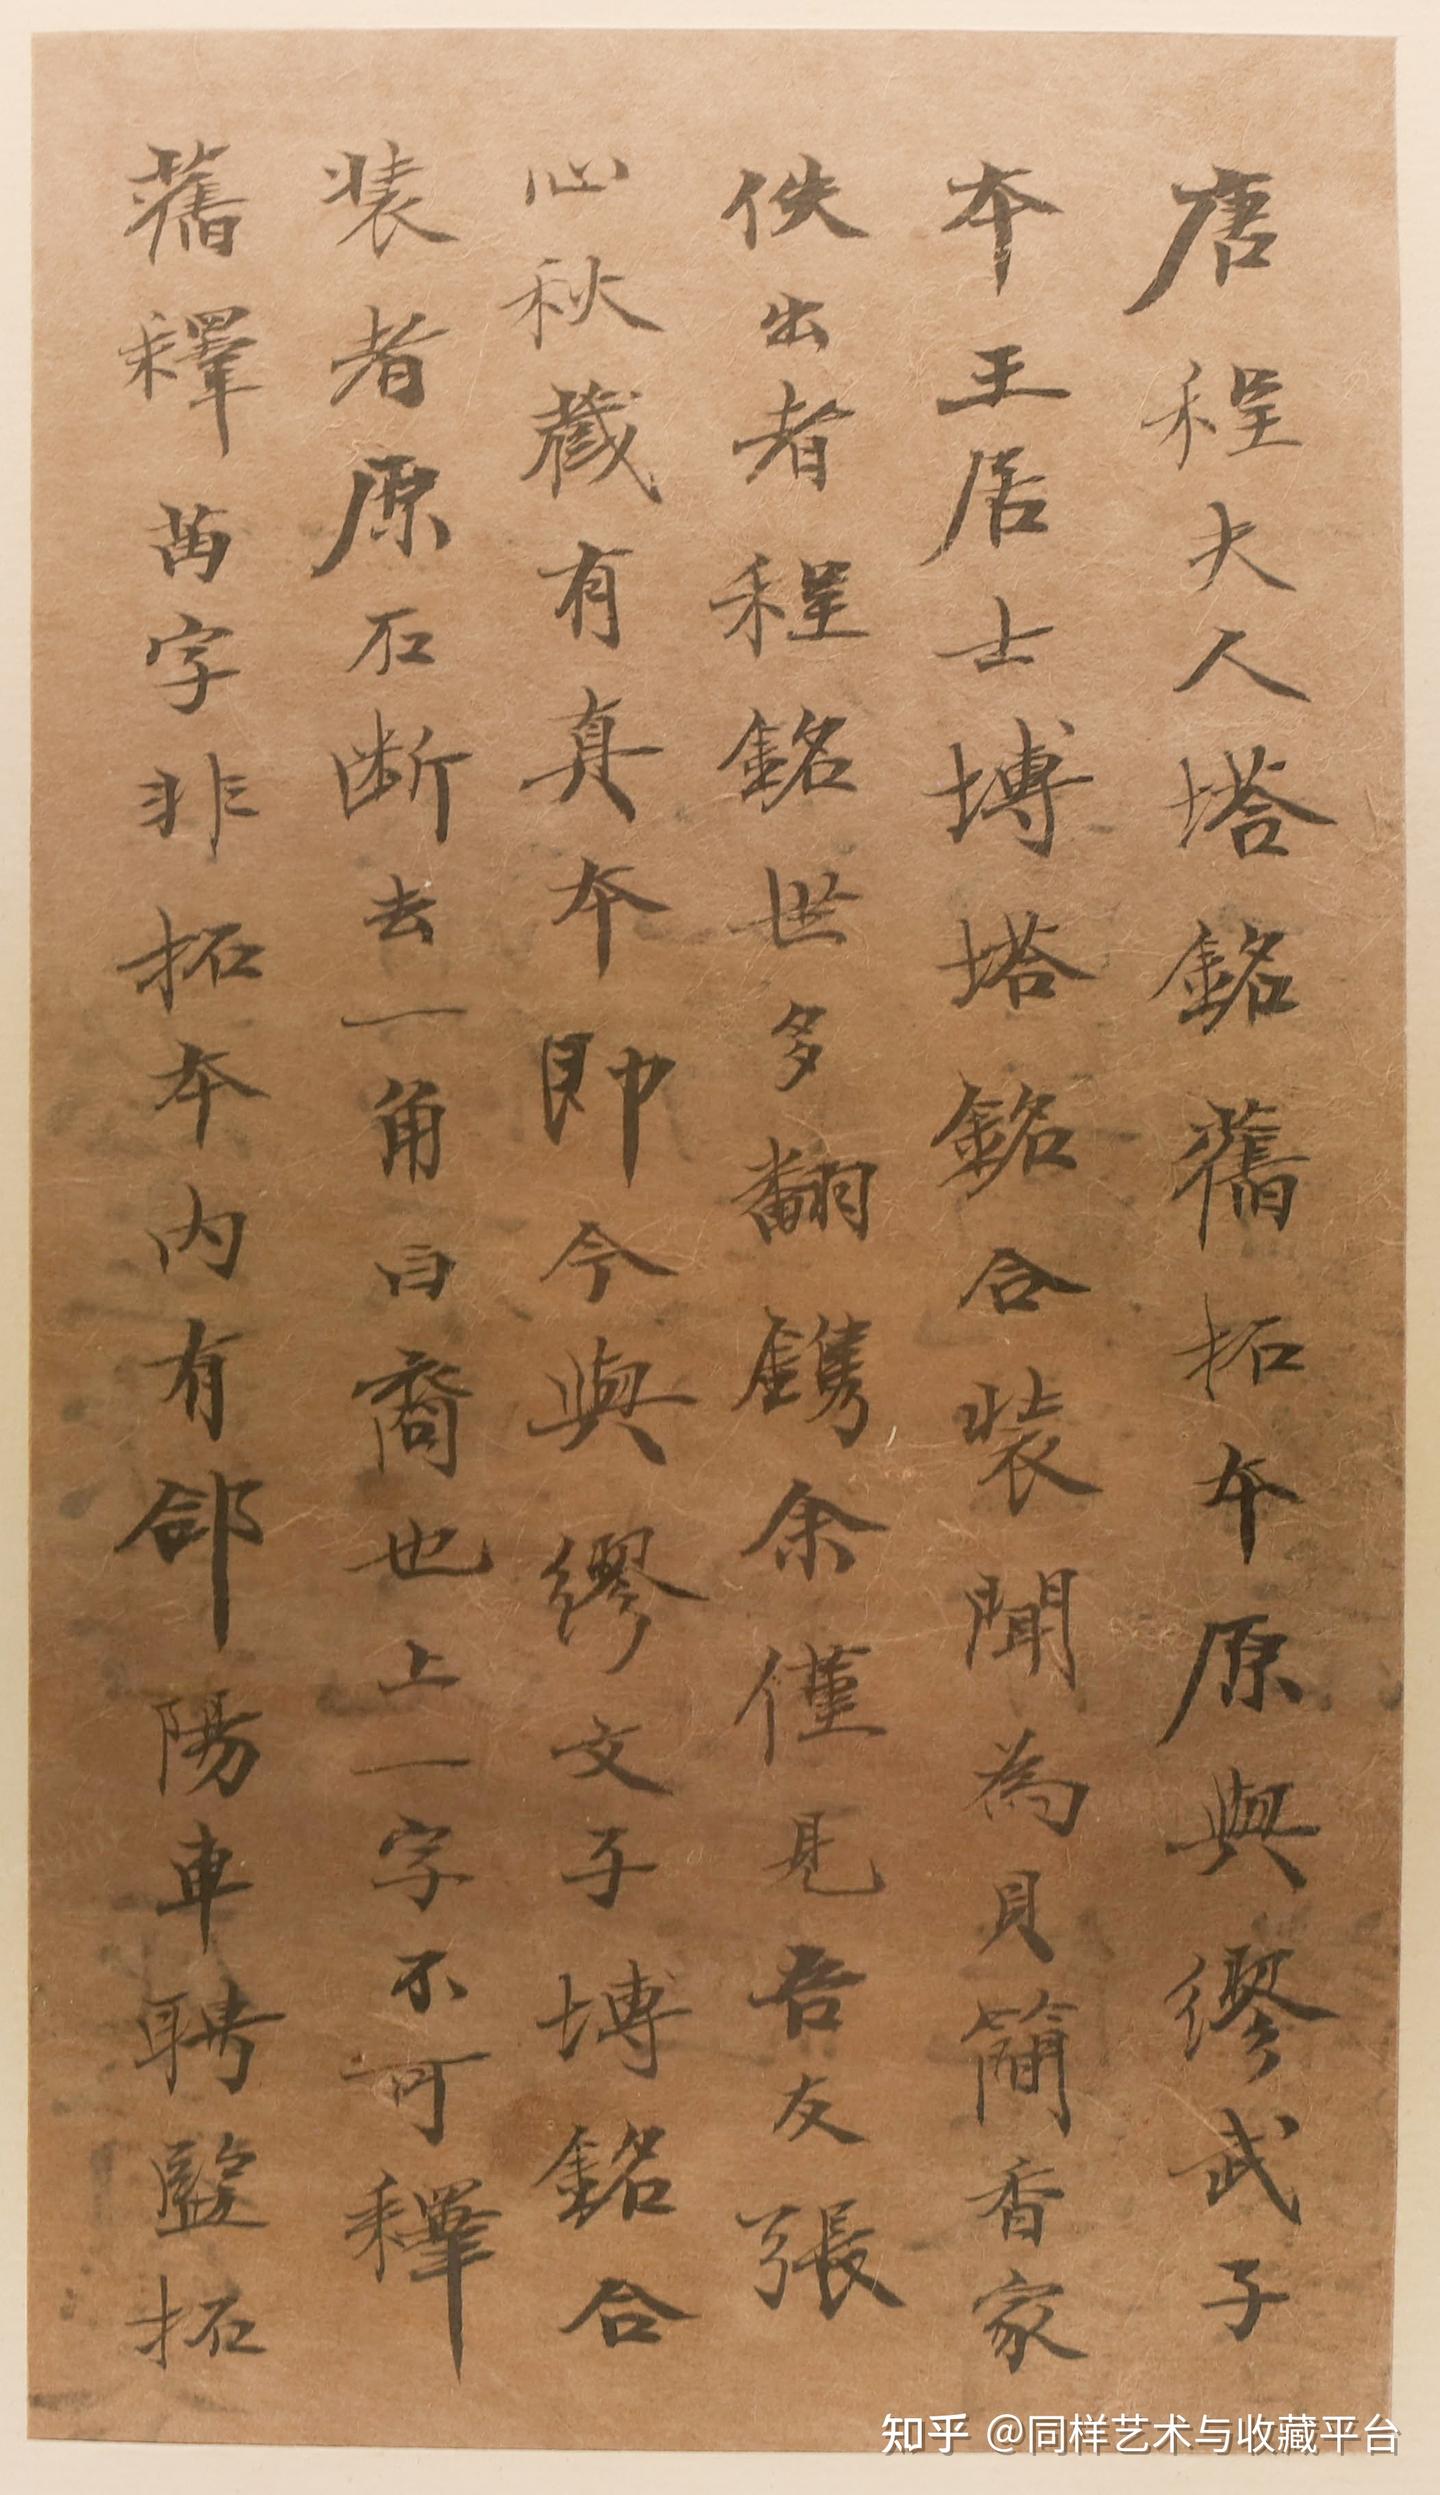 唐程大人塔銘舊拓本原與繆武子
本王居士塼塔銘合裝聞為貝簡香家
佚出者程銘世多翻鐫余僅見吾友張
心秋藏有真本即今與繆文子塼銘合
裝者原石斷去一角白裔也上一字不可釋
舊釋苗字非拓本内有郃陽車聘監拓
知乎 @同样艺术与收藏平台